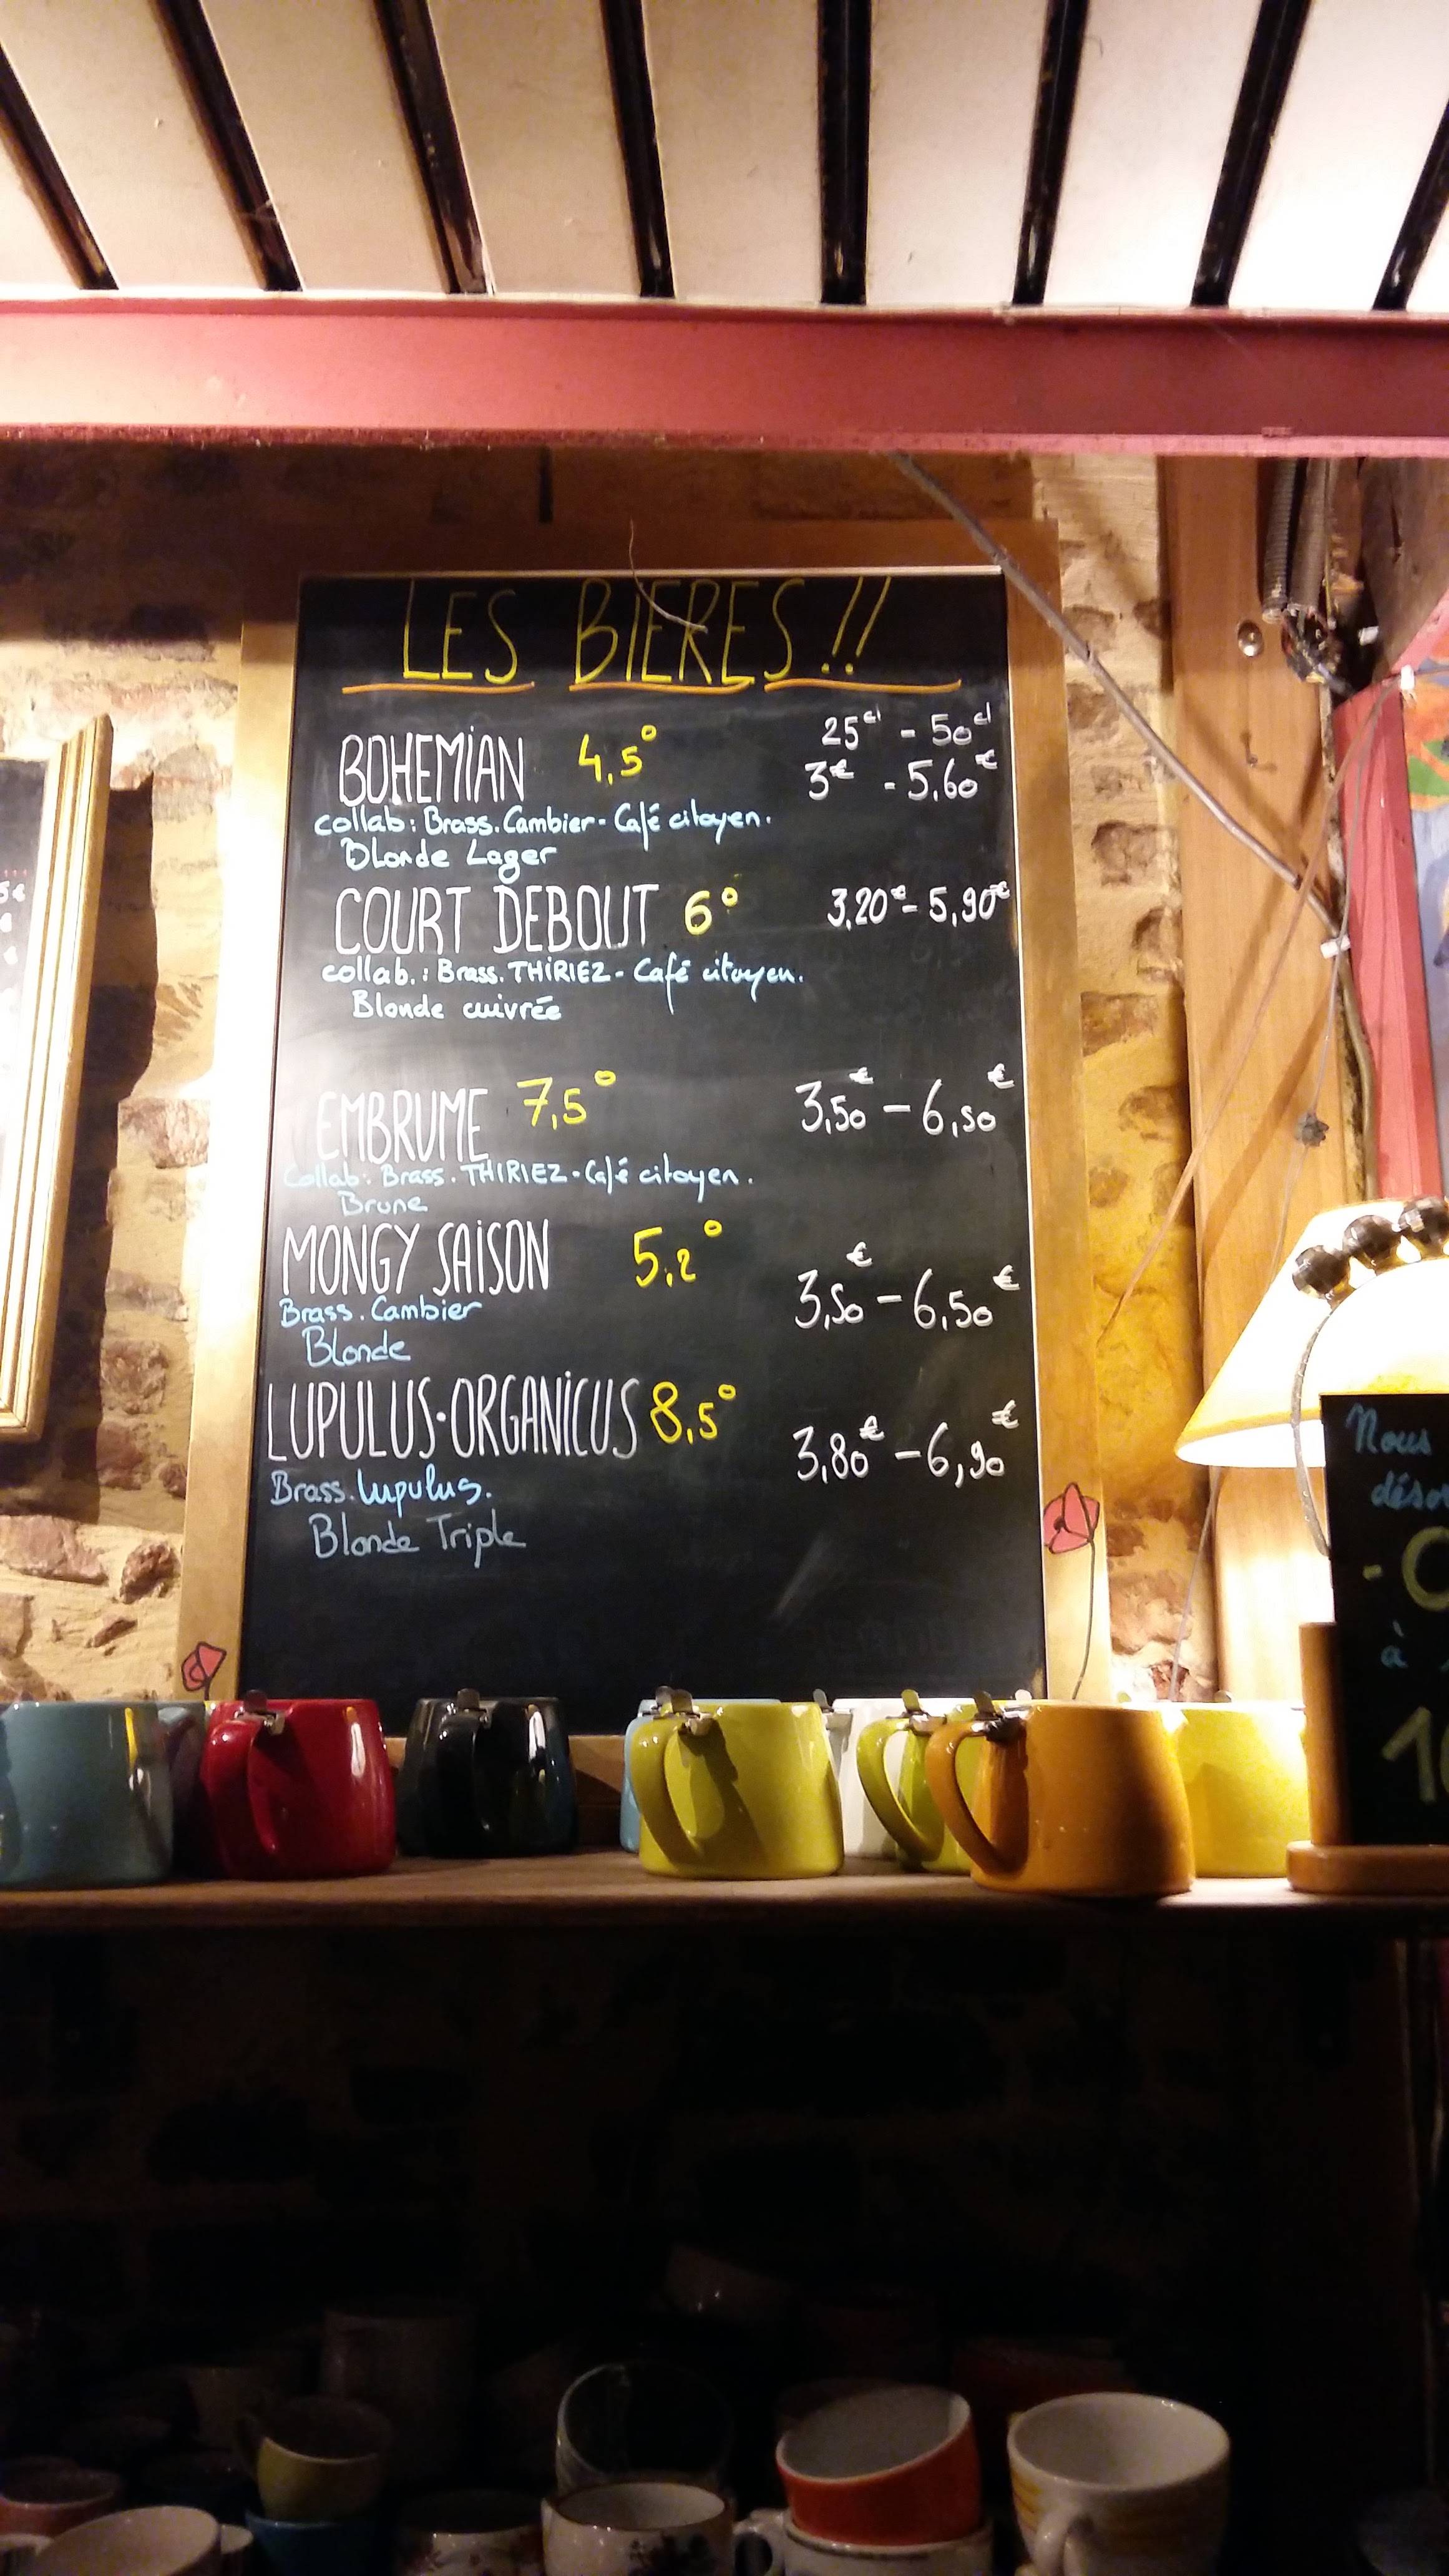 LES BIERES !!
25cl - 50cl
BOHEMiAN 4,5° 3€ - 5,60€
collab : Brass. Cambier - Café citoyen.
Blonde Lager
COURT DEBOUT 6° 3,20€ - 5,90€
collab. : Brass. THiRiEZ - Café citoyen.
Blonde cuivrée
EMBRUME 7,5° 3,50€ - 6,50€
Collab : Brass. THIRIEZ - Café citoyen.
Brune
MONGY SAiSON 5,2° 3,50€ - 6,50€
Brass. Cambier
Blonde
LUPULUS·ORGANiCUS 8,5° 3,80€ - 6,90€
Brass. Lupulus.
Blonde Triple
Nous
à